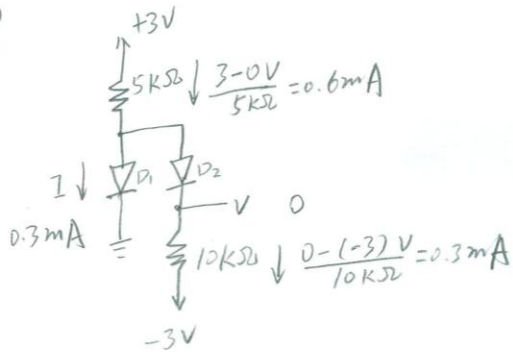 +3V
5kΩ ↓ 3-0V / 5kΩ =0.6mA
I ↓ D1 D2
V 0
0.3mA
10kΩ ↓ 0-(-3)V / 10kΩ =0.3mA
-3V